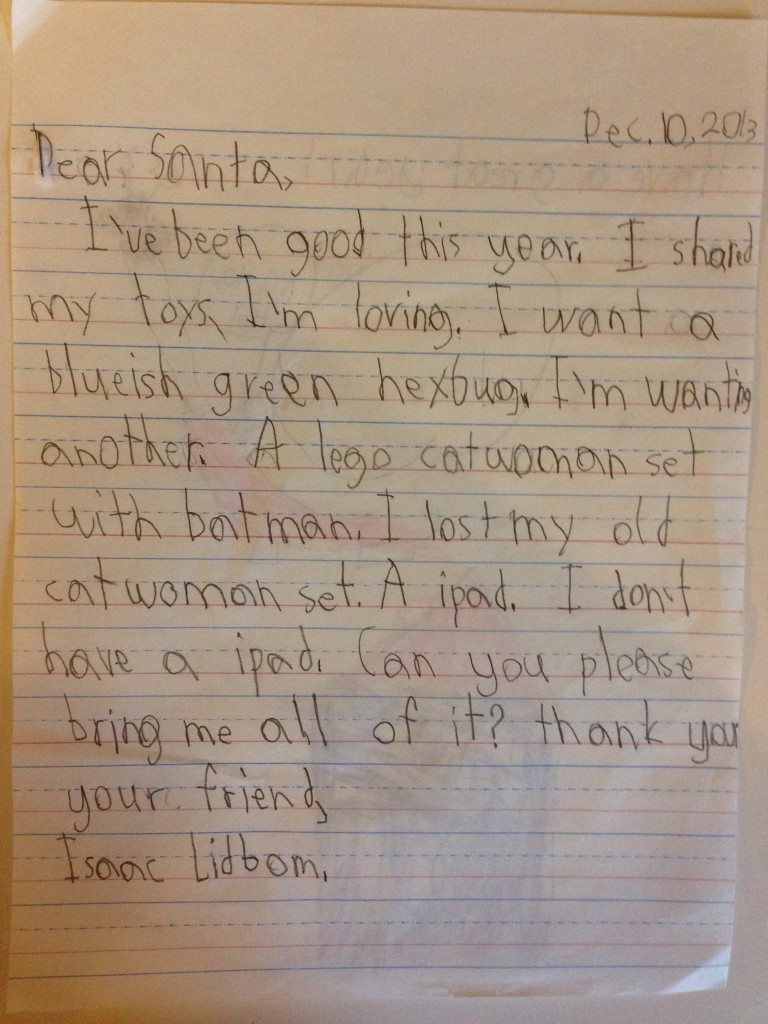 Dec. 10, 2013
Dear Santa,
I've been good this year. I shared
my toys, I'm loving. I want a
blueish green hexbug. I'm wanting
another. A lego catwoman set
with batman. I lost my old
catwoman set. A ipad. I don't
have a ipad. Can you please
bring me all of it? thank you
your friend,
Isaac Lidbom.